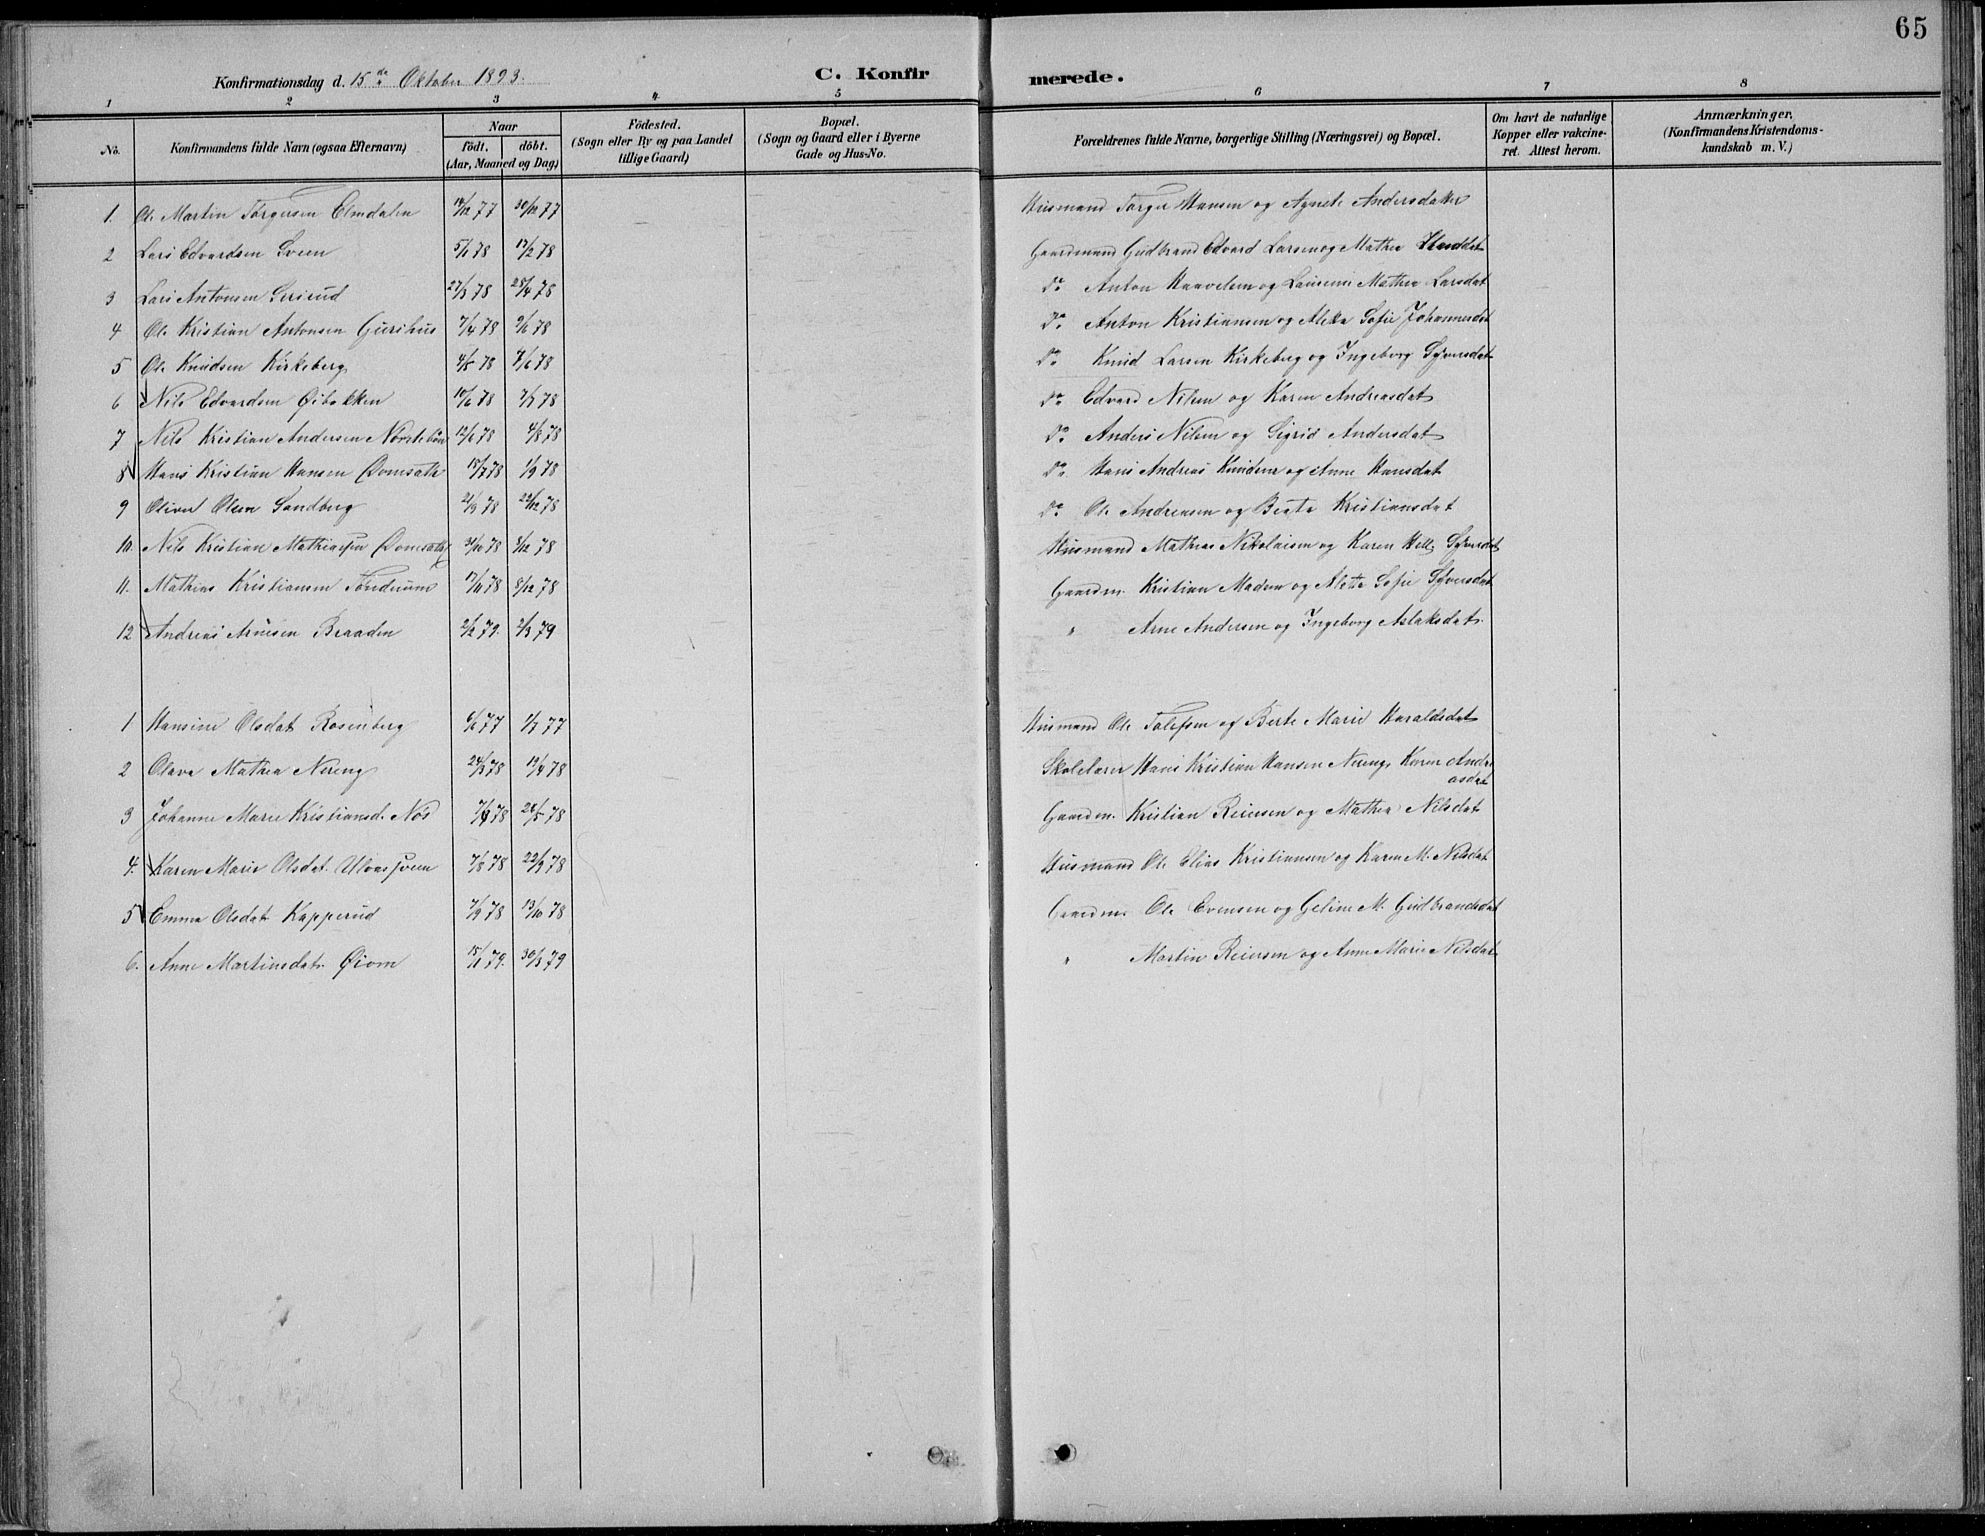 65
Konfirmationsdag d. 15de Oktober 1893.
C. Konfirmerede.
1 2 3 4 5 6 7 8
No.
Konfirmandens fulde Navn (ogsaa Efternavn)
Naar
födt. döbt.
(Aar, Maaned og Dag)
Födested.
(Sogn eller By og paa Landet
tillige Gaard)
Bopæl.
(Sogn og Gaard eller i Byerne
Gade og Hus-No.
Forældrenes fulde Navne, borgerlige Stilling (Næringsvei) og Bopæl.
Om havt de naturlige
Kopper eller vakcine-
ret. Attest herom.
Anmærkninger,
(Konfirmandens Kristendoms-
kundskab m. V.)
1. Ole Martin Torgersen Elmdalen 77 30/12 77 Husmand Torger Hansen og Agnete Andersdatter
2 Lars Edvardsen Sveen 5/1 78 17/2 78 Gaardmand Gudbrand Edvard Larsen og Mathea
3 Lars Antonsen 27/3 78 28/4 78 Do Anton Haavelsen og Mathea Larsdat
4 Ole Kristian Antonsen Gurihus 7/4 78 2/6 78 Do Anton Kristiansen og Sofie Johannesdat
5 Ole Knudsen Kirkeberg 4/5 78 7/6 78 Do Knud Larsen Kirkeberg og Ingeborg Syversdat
6 Nils Edvardsen Øibakken 10/6 78 7/7 78 Do Edvard Nilsen og Karen Andreasdat
7 Nils Kristian Andersen 12/6 78 4/8 78 Do Anders Nilsen og Sigrid Andersdat
8 Hans Kristian Hansen 18/7 78 1/9 78 Do Hans Andreas Knudsen og Anne Hansdat
9 Oliver Olsen Sandberg 21/9 78 22/12 78 Do Ole Andreasen og Beate Kristiansdat
10. Nils Kristian Mathiassen 31/10 78 8/12 78 Husmand Mathias Nikolaisen og Karen Syversdat
11. Mathias Kristiansen 17/11 78 8/12 78 Gaardm. Kristian Madsen og Alette Sofie Syversdat
12 Andreas Arnesen Braaden 2/2 79. 2/3 79 " Arne Andersen og Ingeborg Aslaksdat.
1 Hansine Olsdat Rosenberg 6/6 77 1/7 77 Husmand Ole Tolefsen og Berte Marie Haraldsdat
2 Olava Mathea Nereng 24/3 78 19/4 78 Skolelærer Hans Kristian Hansen Nereng, Karen Andre
asdat
3 Johanne Marie Kristiansd. Nøs 78 26/5 78 Gaardm. Kristian Reiersen og Mathea Nilsdat
4. Karen Marie Olsdat. Ulvassveen 7/8 78 22/9 78 Husmand Ole Elias Kristiansen og Karen M. Nilsdat
5 Emma Olsdat Kapperud 7/9 78 13/10 78 Gaardm. Ole Evensen og Geline M. Gudbrandsdat
6. Anne Martinsdat. Øiom 15/1 79. 30/3 79 " Martin Reiersen og Anne Marie Nilsdat